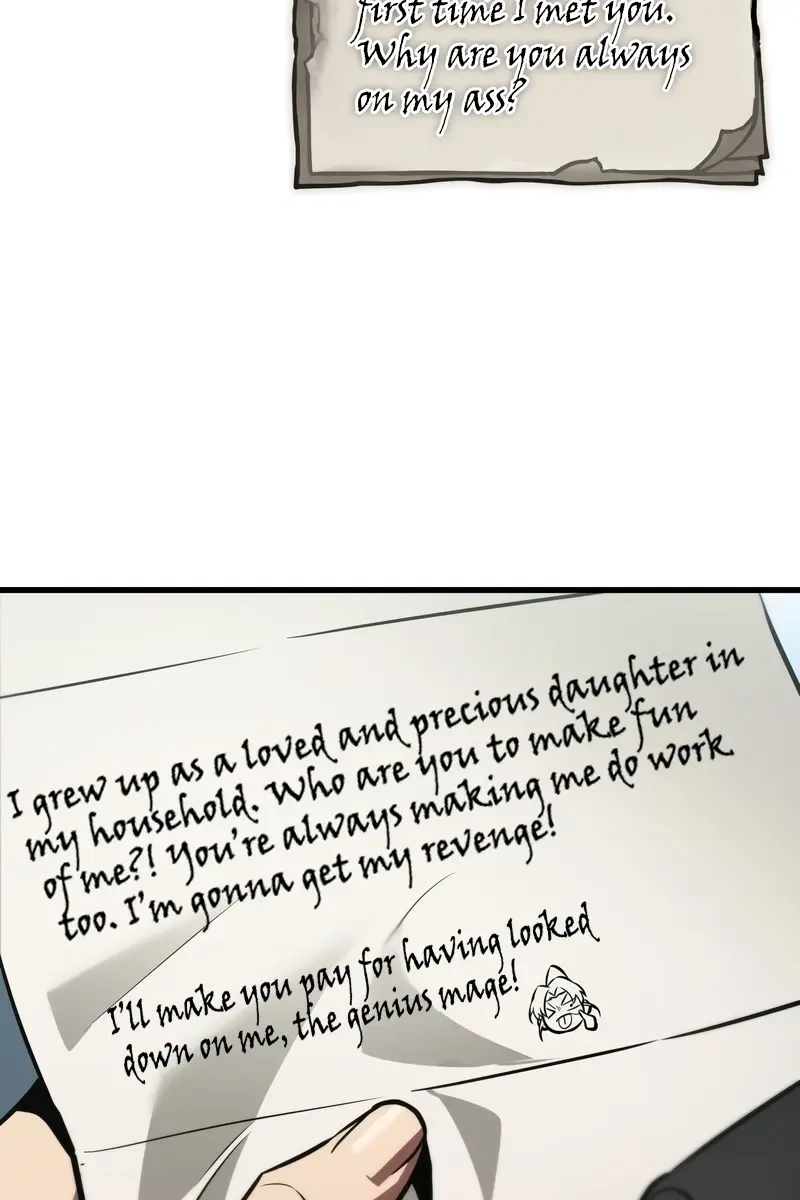 first time I met you.
Why are you always
on my ass?
I grew up as a loved and precious daughter in
my household. Who are you to make fun
of me?! You're always making me do work
too. I'm gonna get my revenge!
I'll make you pay for having looked
down on me, the genius mage!